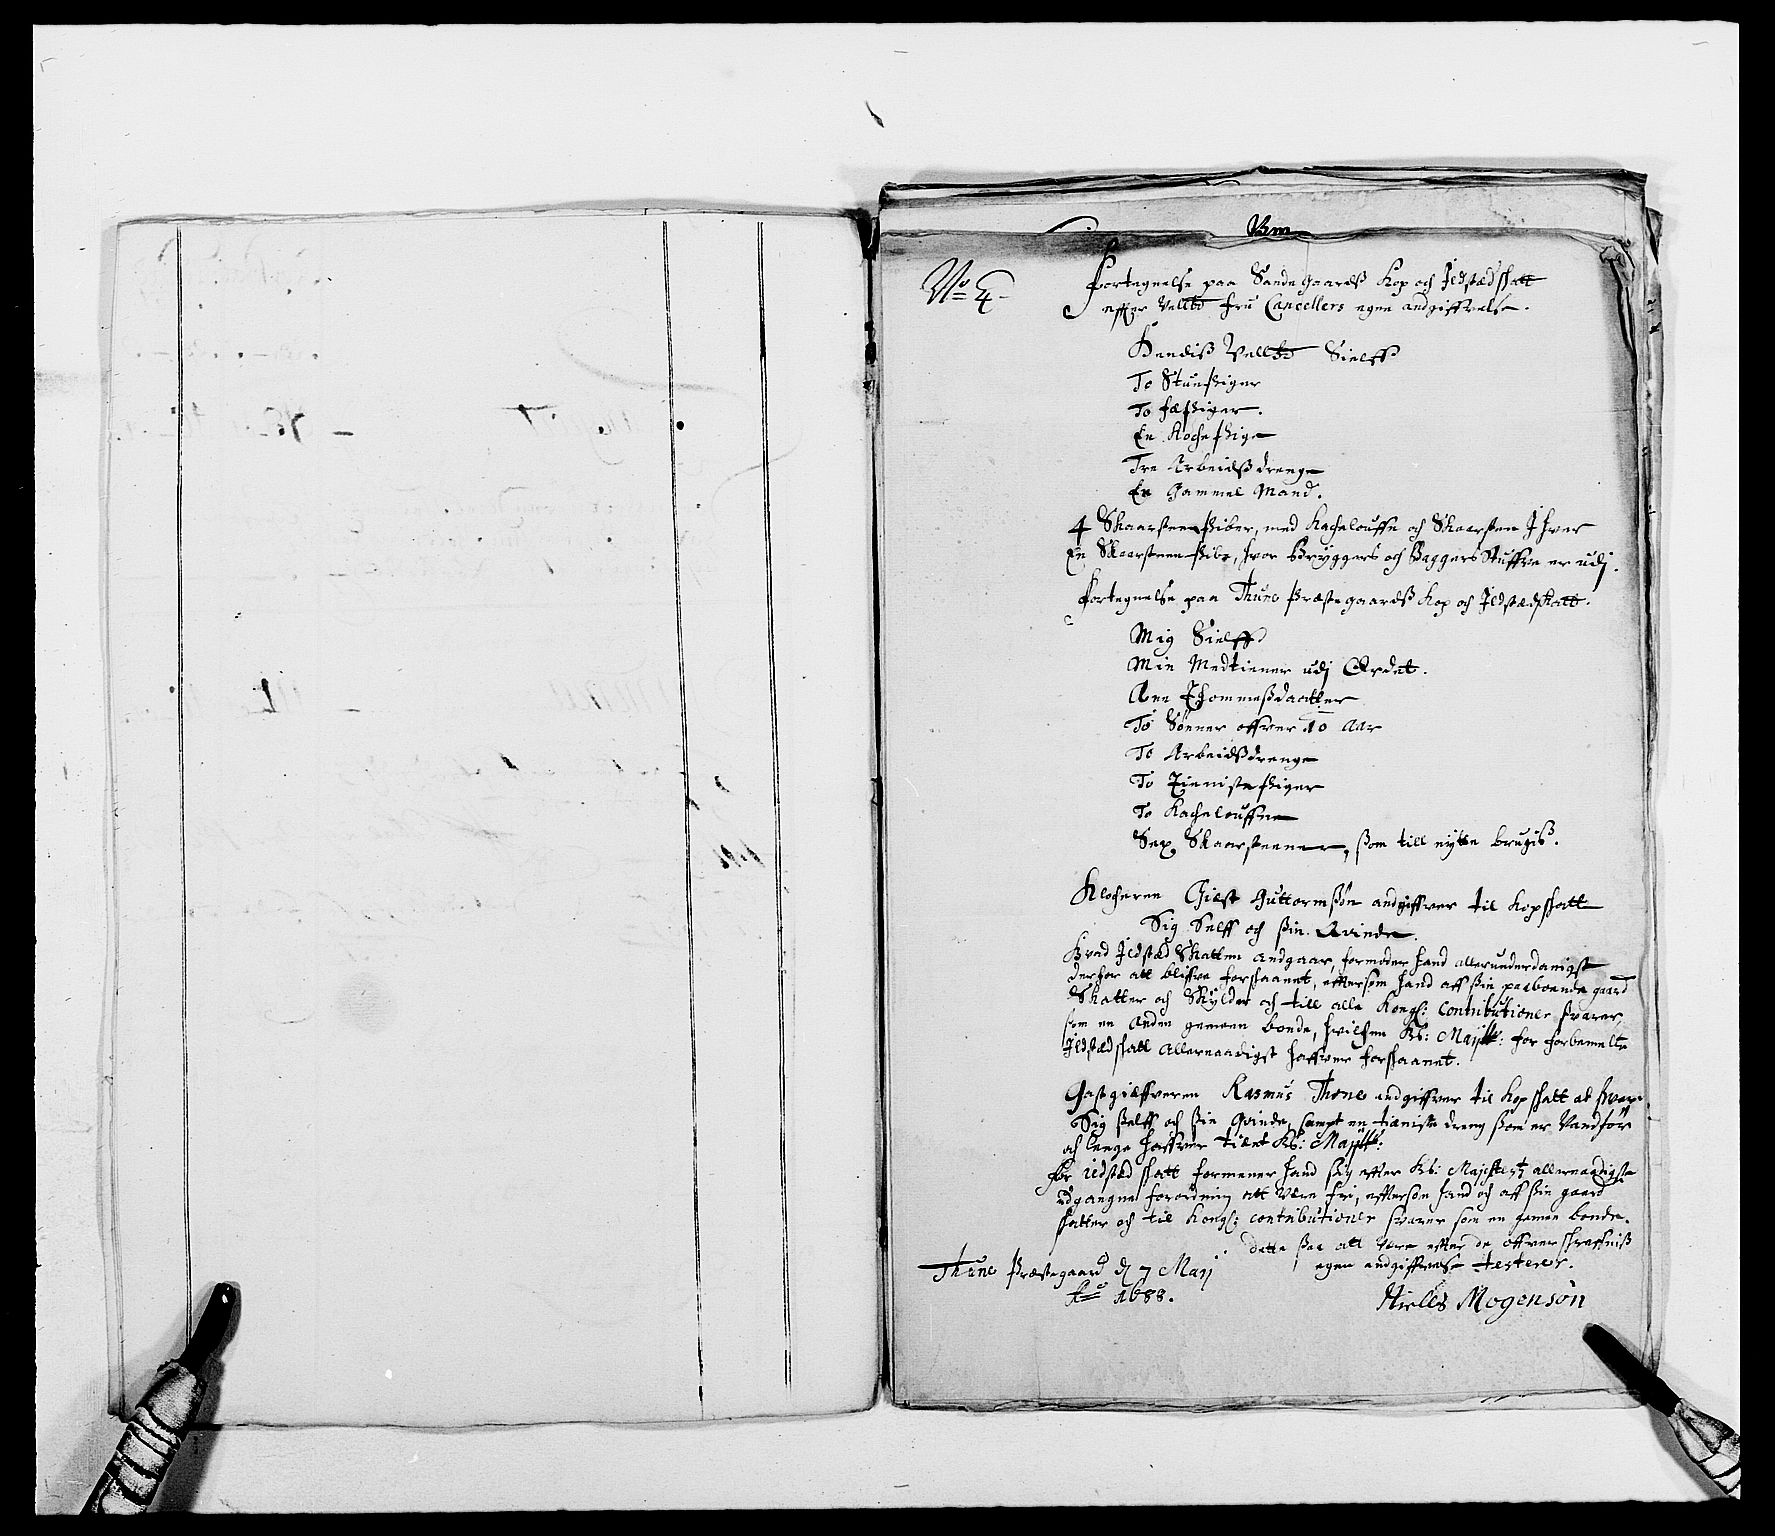 No 4
Fortegnelse paa Sande Gaardß Kop och Ildstædskatt
effter Vellbd fru Cancellers egen andgiffvelse.
Hendiß Vellbd Sielff
To Stuepiger
To fæpiger.
En Kochepige
Tre Arbeidßdrenge
En Gammel Mand.
4 Skaarsteenpiber, med Kachelouffne och Skaarsten J hver
En Skaarsteenpibe, hvor Bryggers och Baggers Stuffve er udj.
Fortegnelse paa Thune Præstegaardß Kop och Ildstædskatt.
Mig Sielff
Min Medtiener udj Ordet.
Ane Thommeßdaatter
To Sønner offver 10 Aar
To Arbeidßdrenge
To Tienistepiger
To Kachelouffne
Sex Skaarsteene, som till nytte brugiß.
Klocheren Giest Guttormßøn andgiffver til Kopskatt
Sig Selff och ßin Qvinde.
Hvad Ildstæd Skatten andgaar, formoder hand allerunderdanigst
derfor att bliffve forskaanet, eftersom hand aff ßin paaboende gaard
Skatter och Skylder och till alle Kongl: Contributioner svarer,
som en Anden gemeen bonde, hvilchen Kl: Majtt: for forbemelte
Ildstædskatt Allernaadigst haffver forskaanet.
Gastgiffveren Rasmus Thone andgiffver til Kopskatt at svare
Sig ßelff och ßin Qvinde, sampt en tieniste dreng ßom er Vandfør
och lenge haffver tient Kl: Majtt:
For ildstæd skatt formener hand sig effter Kl: Majestetz allernaadigste
udgangne forordning att være fri, efftersom hand och aff ßin gaard
skatter och til Kongl: contributioner svarer som en gemen bonde.
Dette ßaa att være effter de offverskreffniß
egen andgiffvelse testerer.
Thune Præstegaard d 7 Marj
Ao 1688.
Niells Mogensøn